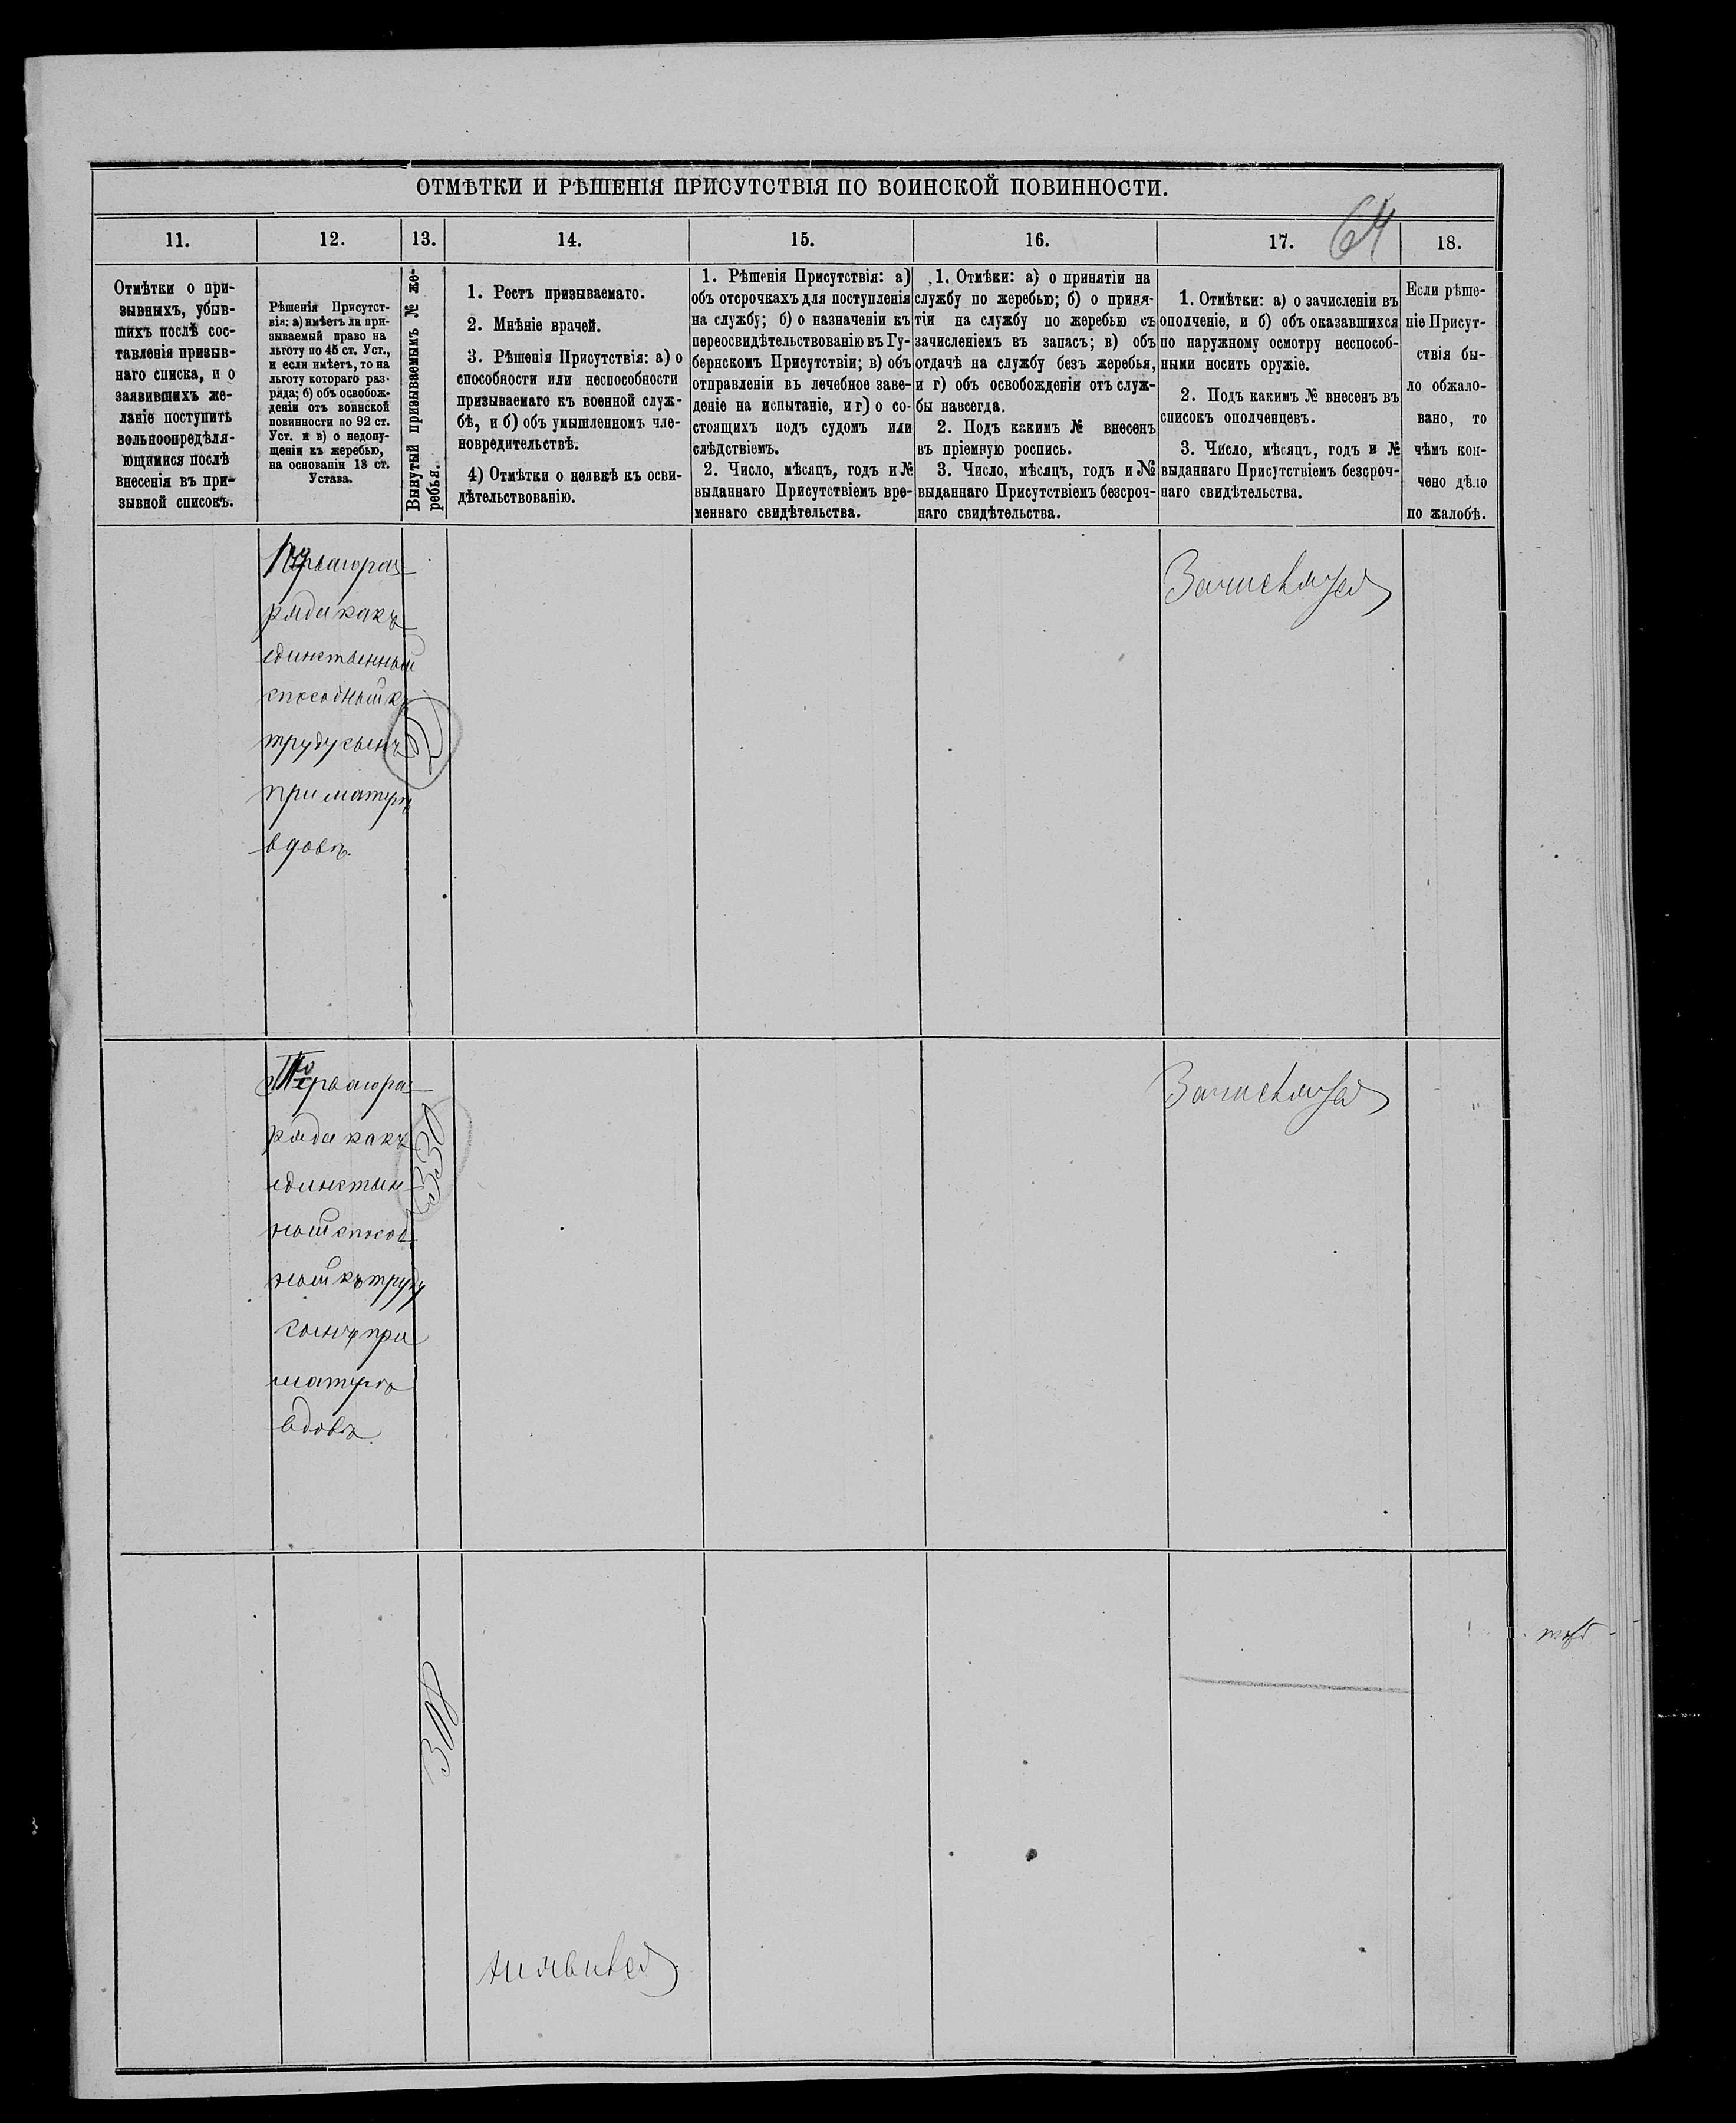 ОТМѢТКИ И РѢШЕНІЯ ПРИСУТСТВІЯ ПО ВОИНСКОЙ ПОВИННОСТИ.
64
11.
12.
13.
14.
15.
16.
17.
18.
Отмѣтки о при-
зывныхъ, убыв-
шихъ послѣ сос-
тавленія призыв-
наго списка, и о
заявившихъ же-
ланіе поступить
вольноопредѣля-
ющимися послѣ
внесенія въ при-
зывной списокъ.
Рѣшенія Присутст-
вія: а) имѣетъ ли при-
зываемый право на
льготу по 45 ст. Уст.,
и если имѣетъ, то на
льготу котораго раз-
ряда; б) объ освобож-
деніи отъ воинской
повинности по 92 ст.
Уст. и в) о недопу-
щеніи къ жеребью,
на основаніи 13 ст.
Устава.
Вынутый призываемымъ № же-
ребья.
1. Ростъ призываемаго.
2. Мнѣніе врачей.
3. Рѣшенія Присутствія: а) о
способности или неспособности
призываемаго къ военной служ-
бѣ, и б) объ умышленномъ чле-
новредительствѣ.
4) Отмѣтки о неявкѣ къ осви-
дѣтельствованію.
1. Рѣшенія Присутствія: а)
объ отсрочкахъ для поступленія
на службу; б) о назначеніи къ
переосвидѣтельствованію въ Гу-
бернскомъ Присутствіи; в) объ
отправленіи въ лечебное заве-
деніе на испытаніе, и г) о со-
стоящихъ подъ судомъ или
слѣдствіемъ.
2. Число, мѣсяцъ, годъ и №
выданнаго Присутствіемъ вре-
меннаго свидѣтельства.
1. Отмѣки: а) о принятіи на
службу по жеребью; б) о приня-
тіи на службу по жеребью съ
зачисленіемъ въ запасъ; в) объ
отдачѣ на службу безъ жеребья,
и г) объ освобожденіи отъ служ-
бы навсегда.
2. Подъ какимъ № внесенъ
въ пріемную роспись.
3. Число, мѣсяцъ, годъ и №
выданнаго Присутствіемъ безсроч-
наго свидѣтельства.
1. Отмѣтки: а) о зачисленіи въ
ополченіе, и б) объ оказавшихся
по наружному осмотру неспособ-
ными носить оружіе.
2. Подъ какимъ № внесенъ въ
списокъ ополченцевъ.
3. Число, мѣсяцъ, годъ и №
выданнаго Присутствіемъ безсроч-
наго свидѣтельства.
Если рѣше-
ніе Присут-
ствія бы-
ло обжало-
вано, то
чѣмъ кон-
чено дѣло
по жалобѣ.
Перваго раз-
ряда какъ
единственный
способный къ
труду сынъ
при матери
вдовѣ.
Зачисляется
Перваго раз-
ряда какъ
единствен-
ный способ-
ный къ труду
сынъ при
матери
вдовѣ.
Зачисляется
не явился